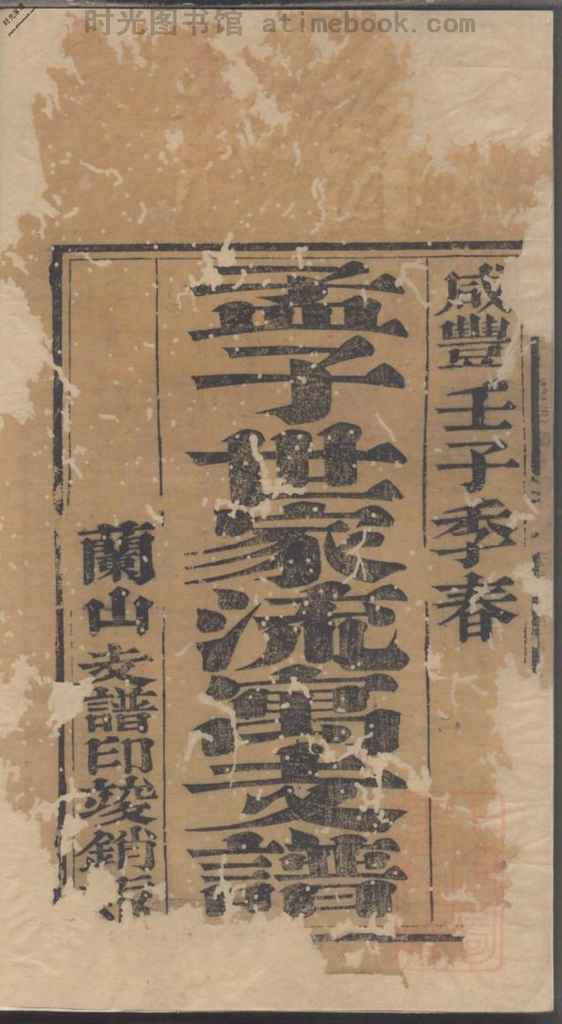 时光图书馆 atimebook.com
咸豐壬子季春
孟子世家流寓支譜
蘭山支譜印竣銷